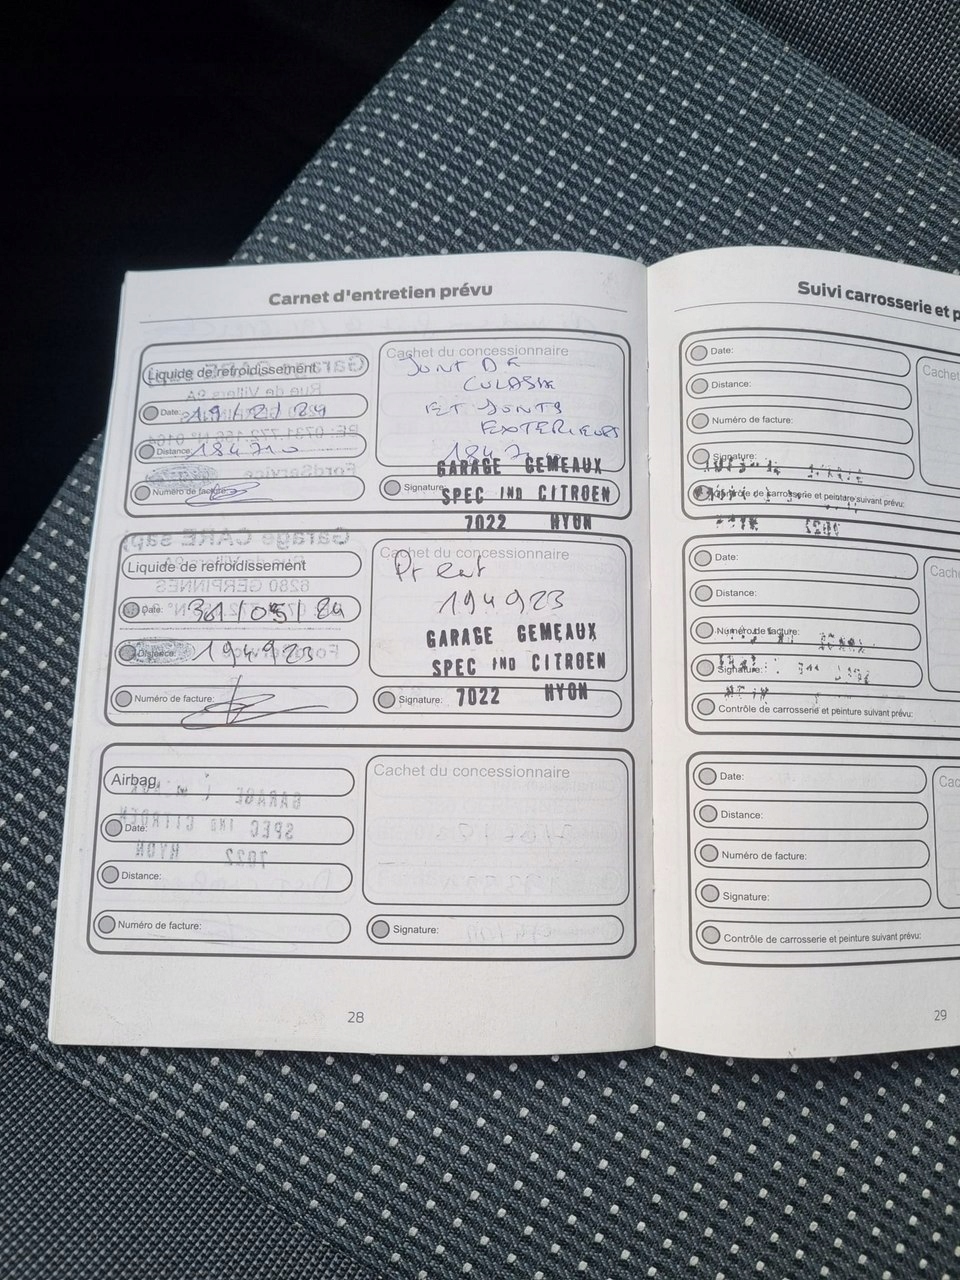 Carnet d'entretien prévu
Liquide de refroidissement
Date: 19/2/24
Distance: 184710
Numéro de facture:
Cachet du concessionnaire
JOINT DE
CULASSE
ET JOINTS
EXTERIEURS
GARAGE GEMEAUX
Signature:
SPEC IND CITROEN
7022 HYON
Liquide de refroidissement
Date: 31/05/24
Distance: 194923
Numéro de facture:
Cachet du concessionnaire
194923
GARAGE GEMEAUX
SPEC IND CITROEN
Signature:
7022 HYON
Airbag
Date:
Distance:
Numéro de facture:
Cachet du concessionnaire
Signature:
28
Suivi carrosserie et p
Date:
Distance:
Numéro de facture:
Signature:
Contrôle de carrosserie et peinture suivant prévu:
Cachet
Date:
Distance:
Numéro de facture:
Signature:
Contrôle de carrosserie et peinture suivant prévu:
Cach
Date:
Distance:
Numéro de facture:
Signature:
Contrôle de carrosserie et peinture suivant prévu:
Cac
29